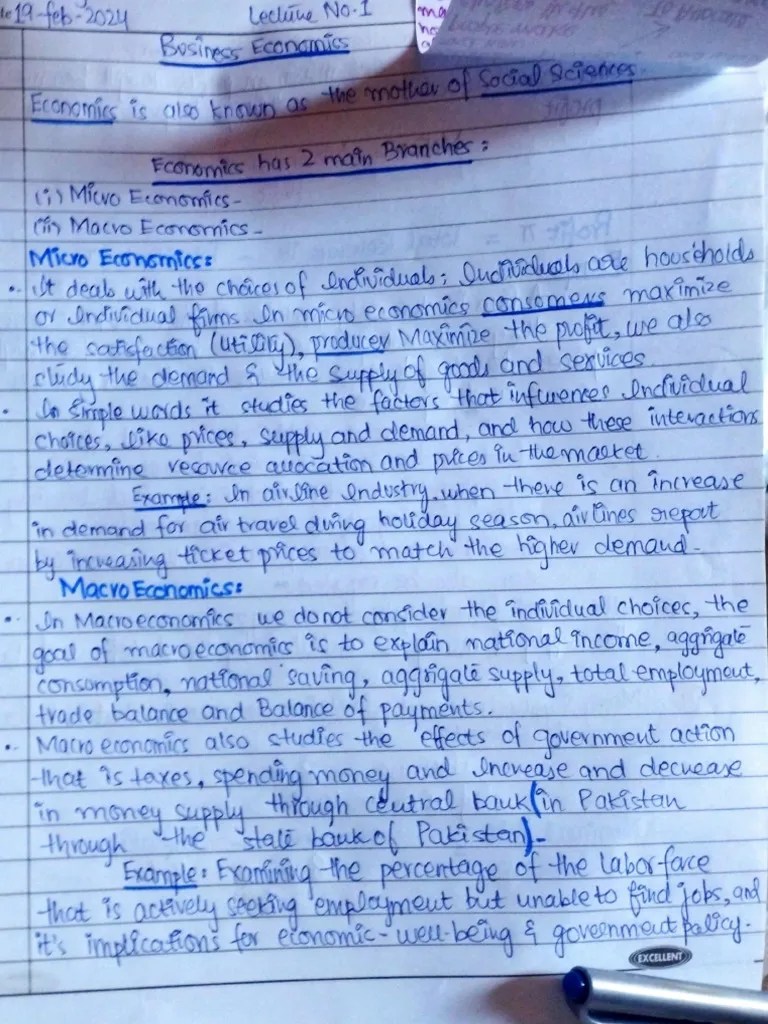 19-feb-2024 Lecture No.1
Business Economics
Economics is also known as the mother of Social Sciences.
Economics has 2 main Branches:
(i) Micro Economics-
(ii) Macro Economics-
Micro Economics:
It deals with the choices of Individuals; Individuals are households
or Individual firms In micro economics consomers maximize
the satisfaction (utility), producer Maximize the profit, we also
study the demand & the supply of goods and services.
In Simple words it studies the factors that infurences Individual
choices, like prices, supply and demand, and how these interactions
determine resource allocation and prices in the market.
Example: In airline Industry, when there is an increase
in demand for air travel during holiday season, airlines
by increasing ticket prices to match the higher demand-
Macro Economics:
In Macroeconomics we do not consider the individual choices, the
goal of macroeconomics is to explain national income, aggrigate
consumption, national saving, aggrigate supply, total employment,
trade balance and Balance of payments.
Macro economics also studies the effects of government action
that is taxes, spending money and Increase and decrease
in money supply through central bank (in Pakistan
through the state bank of Pakistan)-
Example: Examining the percentage of the labor force
that is actively seeking employment but unable to find jobs, and
it's implications for economic-well-being & government policy.
EXCELLENT